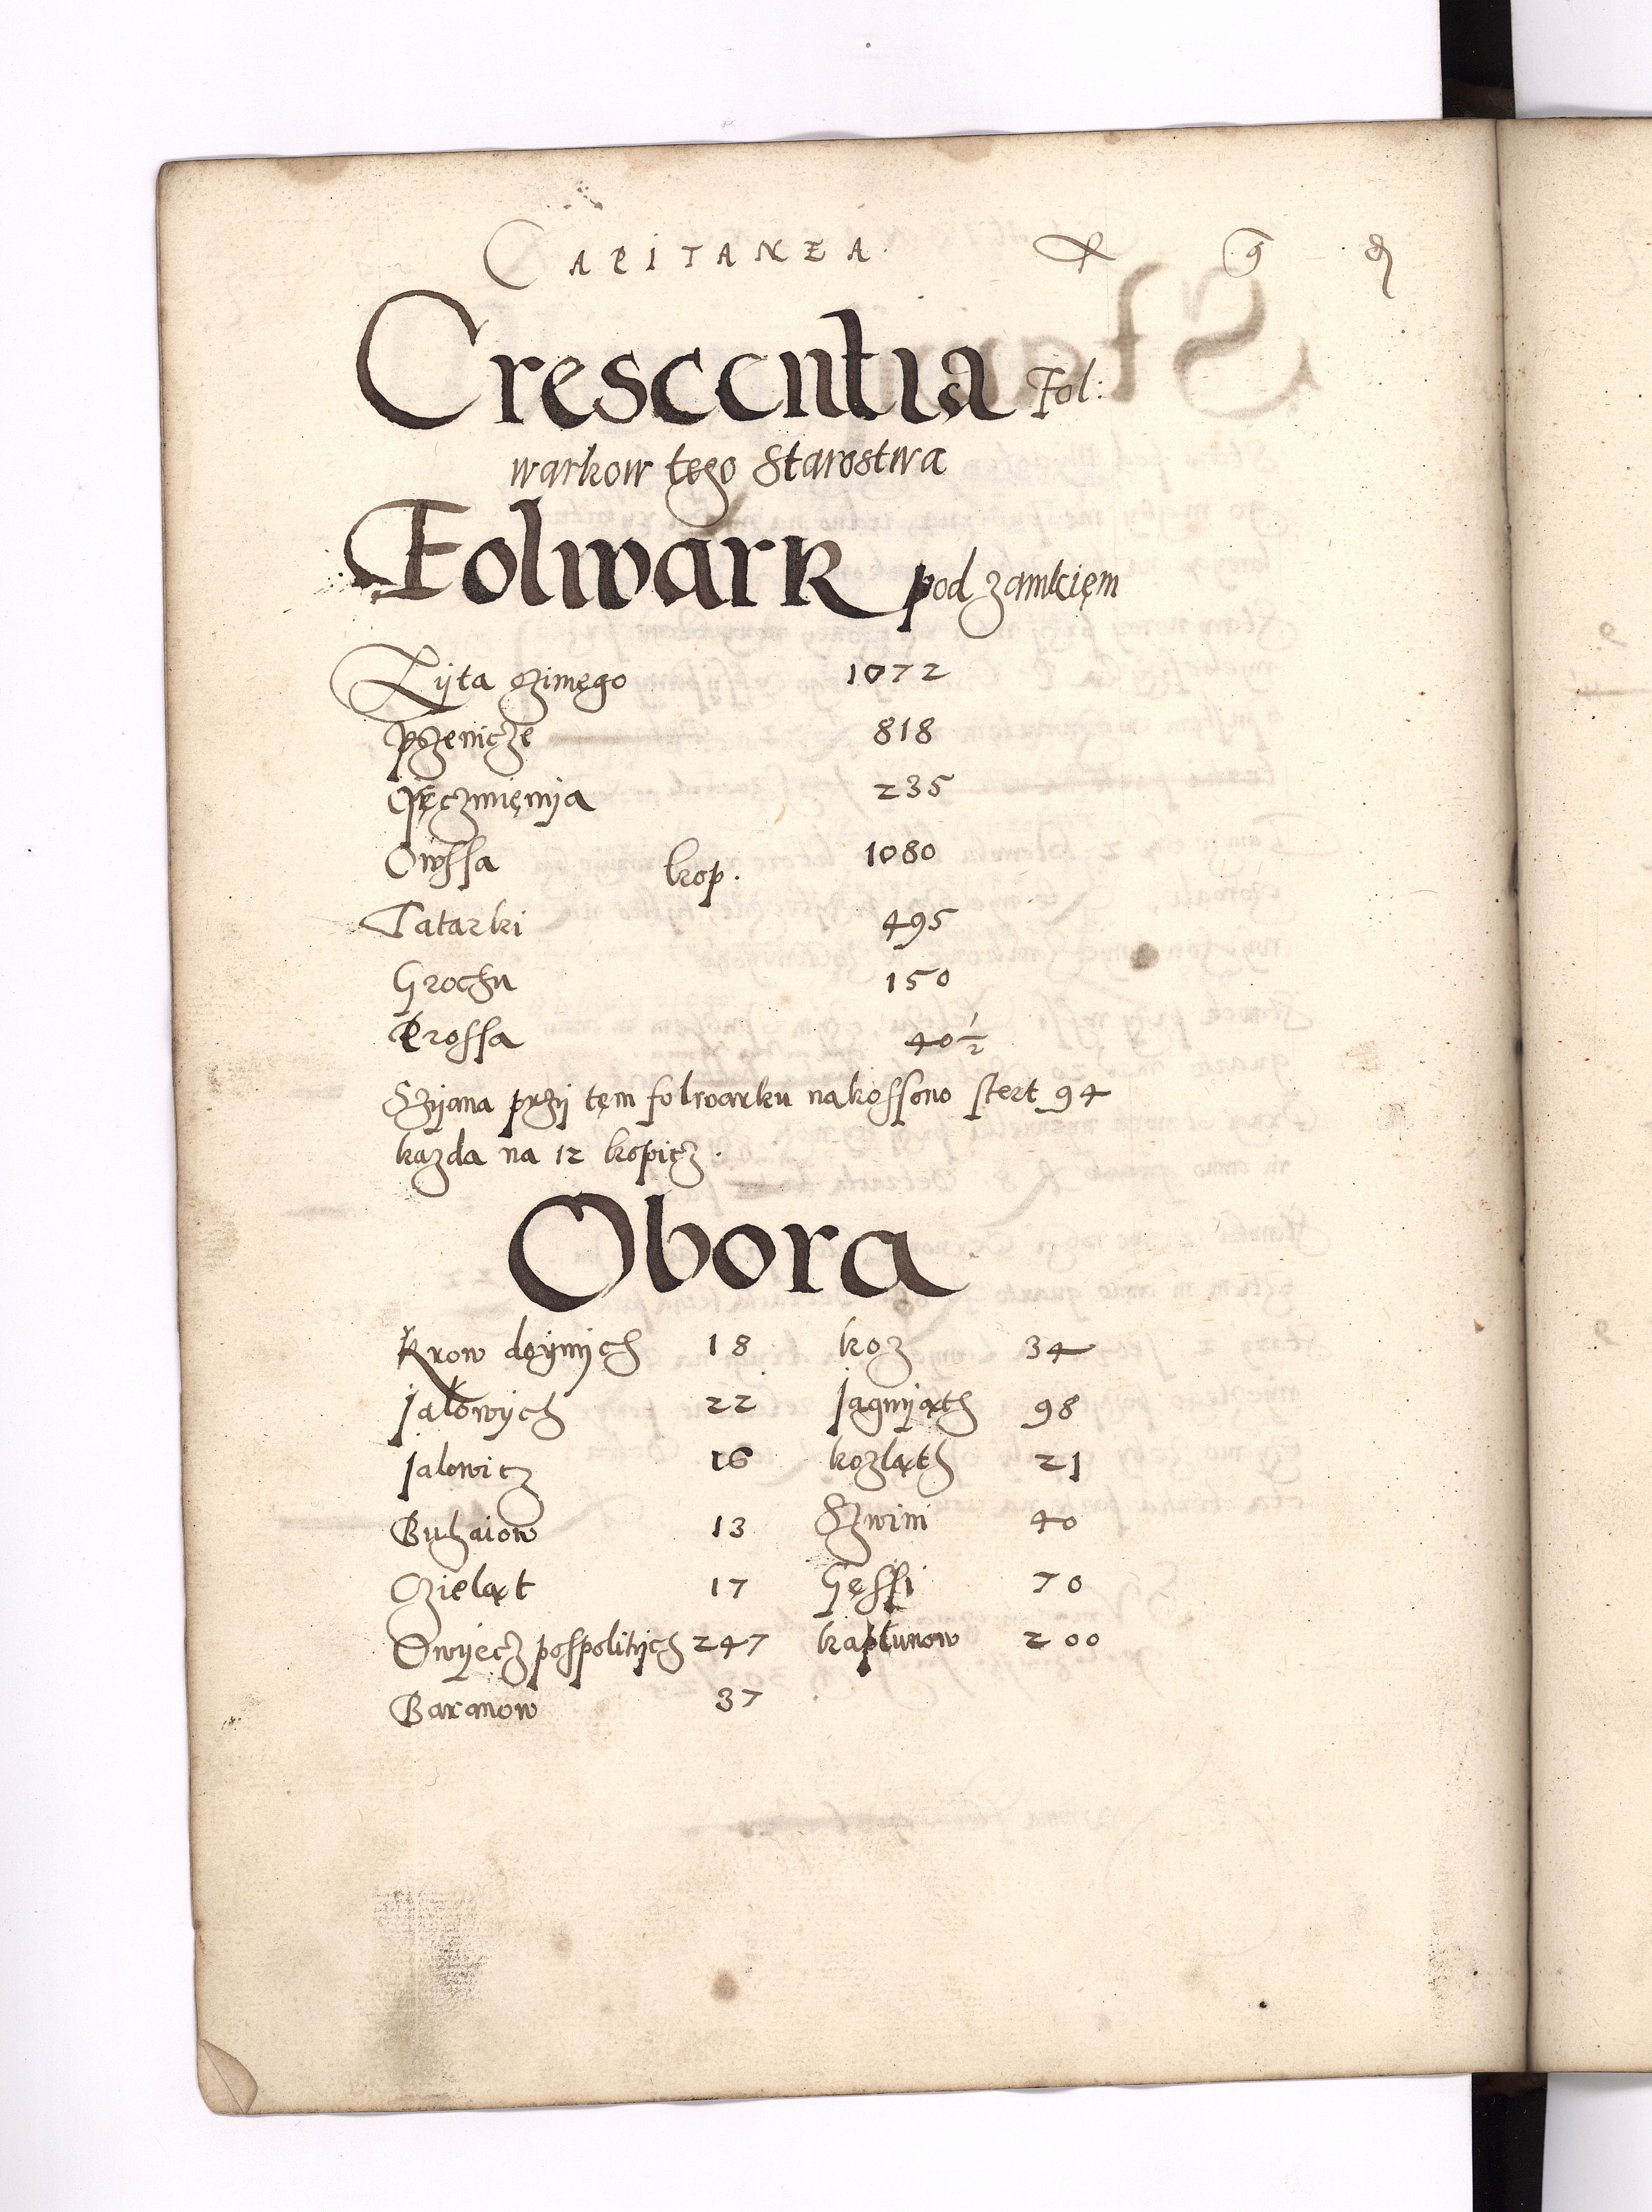 CAPITANEA.    R    9    ꝯ
Crescentia Fol:
warkow tego Starostwa
Folwark pod zamkięm
Zyta ozimęgo 1072
Pszenicze 818
Jęczmięnia 235
Owssa kop. 1080
Tatarki 495
Grochu 150
Prossa 40 1/2
Szyana przy tęm folwarku nakossono stert 94
kazda na 12 kopicz.
Obora
Krow doynych 18 koz 34
Jałowych 22 Jagnyąth 98
Jalowicz 16 kozląth 21
Buhaiow 13 Szwini 40
Czieląt 17 Gęssi 70
Owyecz pospolitych 247 kapłunow 200
Baranow 37